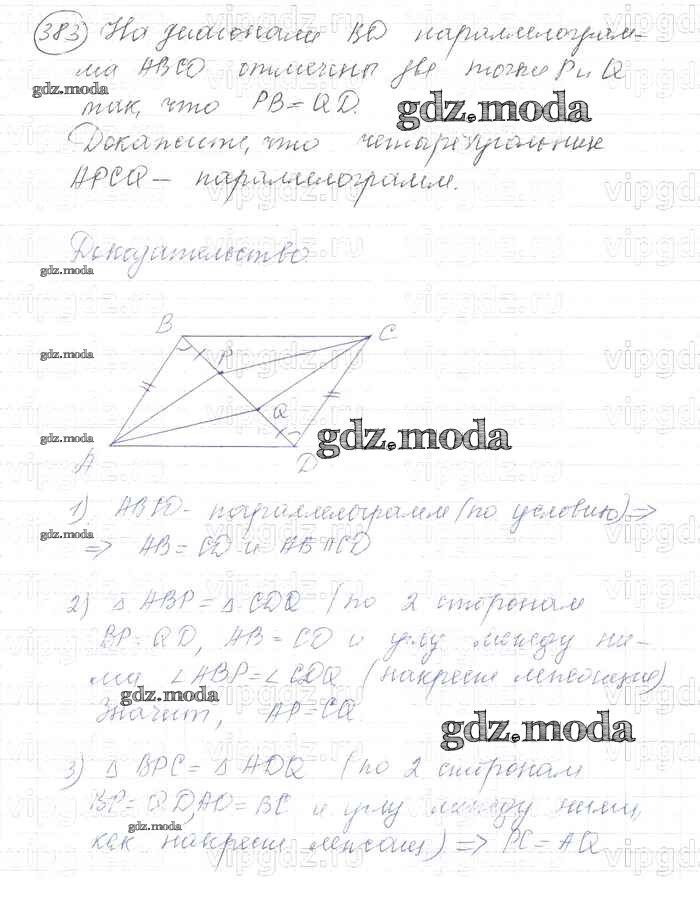 383 На диагонали BD параллелограм-
ма ABCD отмечены две точки P и Q
gdz.moda
так, что PB = QD.
gdz.moda
Докажите, что четырехугольник
APCQ — параллелограмм.
Доказательство
gdz.moda
B
C
P
gdz.moda
Q
gdz.moda
gdz.moda
A
D
1) ABCD - параллелограмм (по условию) =>
gdz.moda
=> AB = CD и AB || CD
2) △ ABP = △ CDQ (по 2 сторонам
BP = QD, AB = CD и углу между ни-
ми ∠ABP = ∠CDQ (накрест лежащие)
gdz.moda
Значит, AP = CQ
gdz.moda
3) △ BPC = △ ADQ (по 2 сторонам
BP = QD, AD = BC и углу между ними,
gdz.moda
как накрест лежащ) => PC = AQ